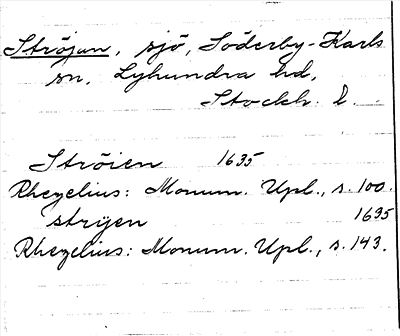 Ströjan, sjö, Söderby-Karls
sn, Lyhundra hd,
Stockh. l.
Ströien 1635
Rhezelius: Monum. Upl., s. 100.
strijen 1635
Rhezelius: Monum. Upl., s. 143.